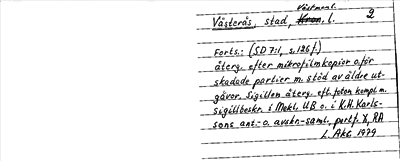 Västmanl.
Västerås, stad, Kron. l. 2
Forts.: (SD 7:1, s. 126 f.)
återg. efter mikrofilmkopior o. för
skadade partier m. stöd av äldre ut-
gåvor. Sigillen återg. eft. foton kompl. m.
sigillbeskr. i Mekl. UB o. i K.H. Karls-
sons ant.- o. avskr.-saml., portf. X, RA
L. Akc 1979